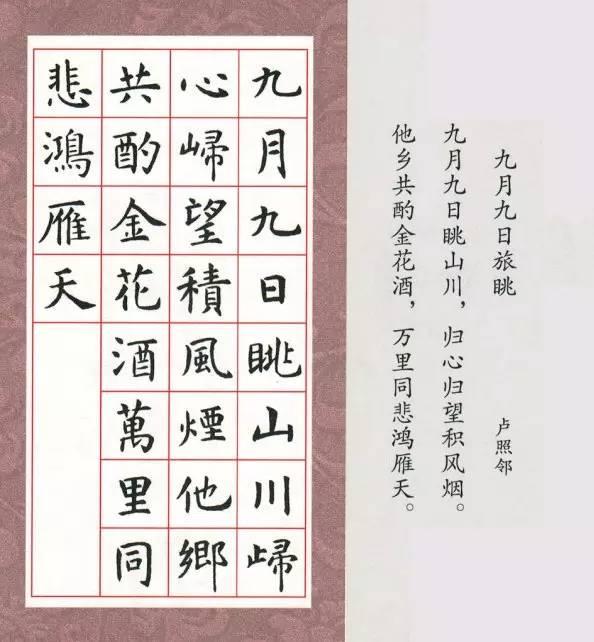 九月九日眺山川歸
心歸望積風煙他鄉
共酌金花酒萬里同
悲鴻雁天
九月九日旅眺 卢照邻
九月九日眺山川，归心归望积风烟。
他乡共酌金花酒，万里同悲鸿雁天。